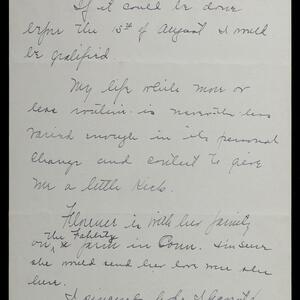 If it could be done
before the 15th of August I would
be gratified.
My life while more or
less routine is nevertheless
varied enough in its personal
change and content to give
me a little kick.
Florence is with her family
on the Faherty farm in Conn.
she would send her love were she
here.